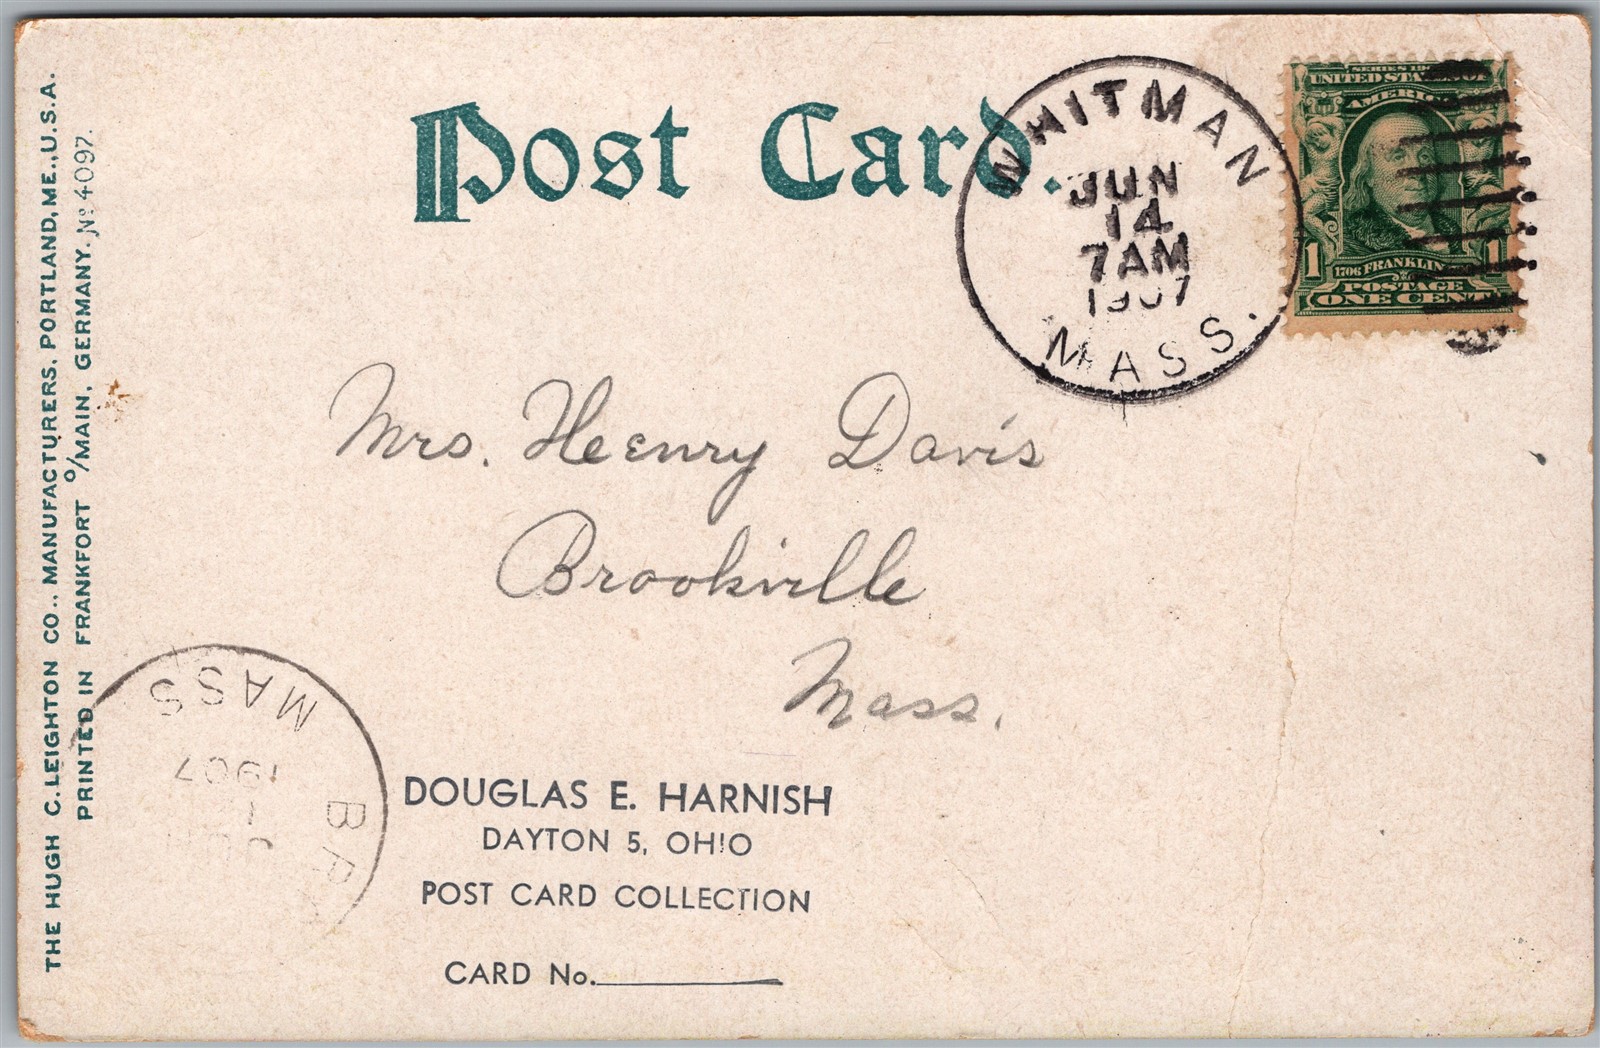 Post Card.
WHITMAN
JUN
14
7AM
1907
MASS.
SERIES
UNITED STATES OF
AMERICA
1 1706 FRANKLIN 1
POSTAGE
ONE CENT
Mrs. Heenry Davis
Brookville
Mass.
THE HUGH C. LEIGHTON CO., MANUFACTURERS, PORTLAND, ME., U.S.A.
PRINTED IN FRANKFORT O/MAIN, GERMANY. No 4097.
MASS
1907
DOUGLAS E. HARNISH
DAYTON 5, OHIO
POST CARD COLLECTION
CARD No.